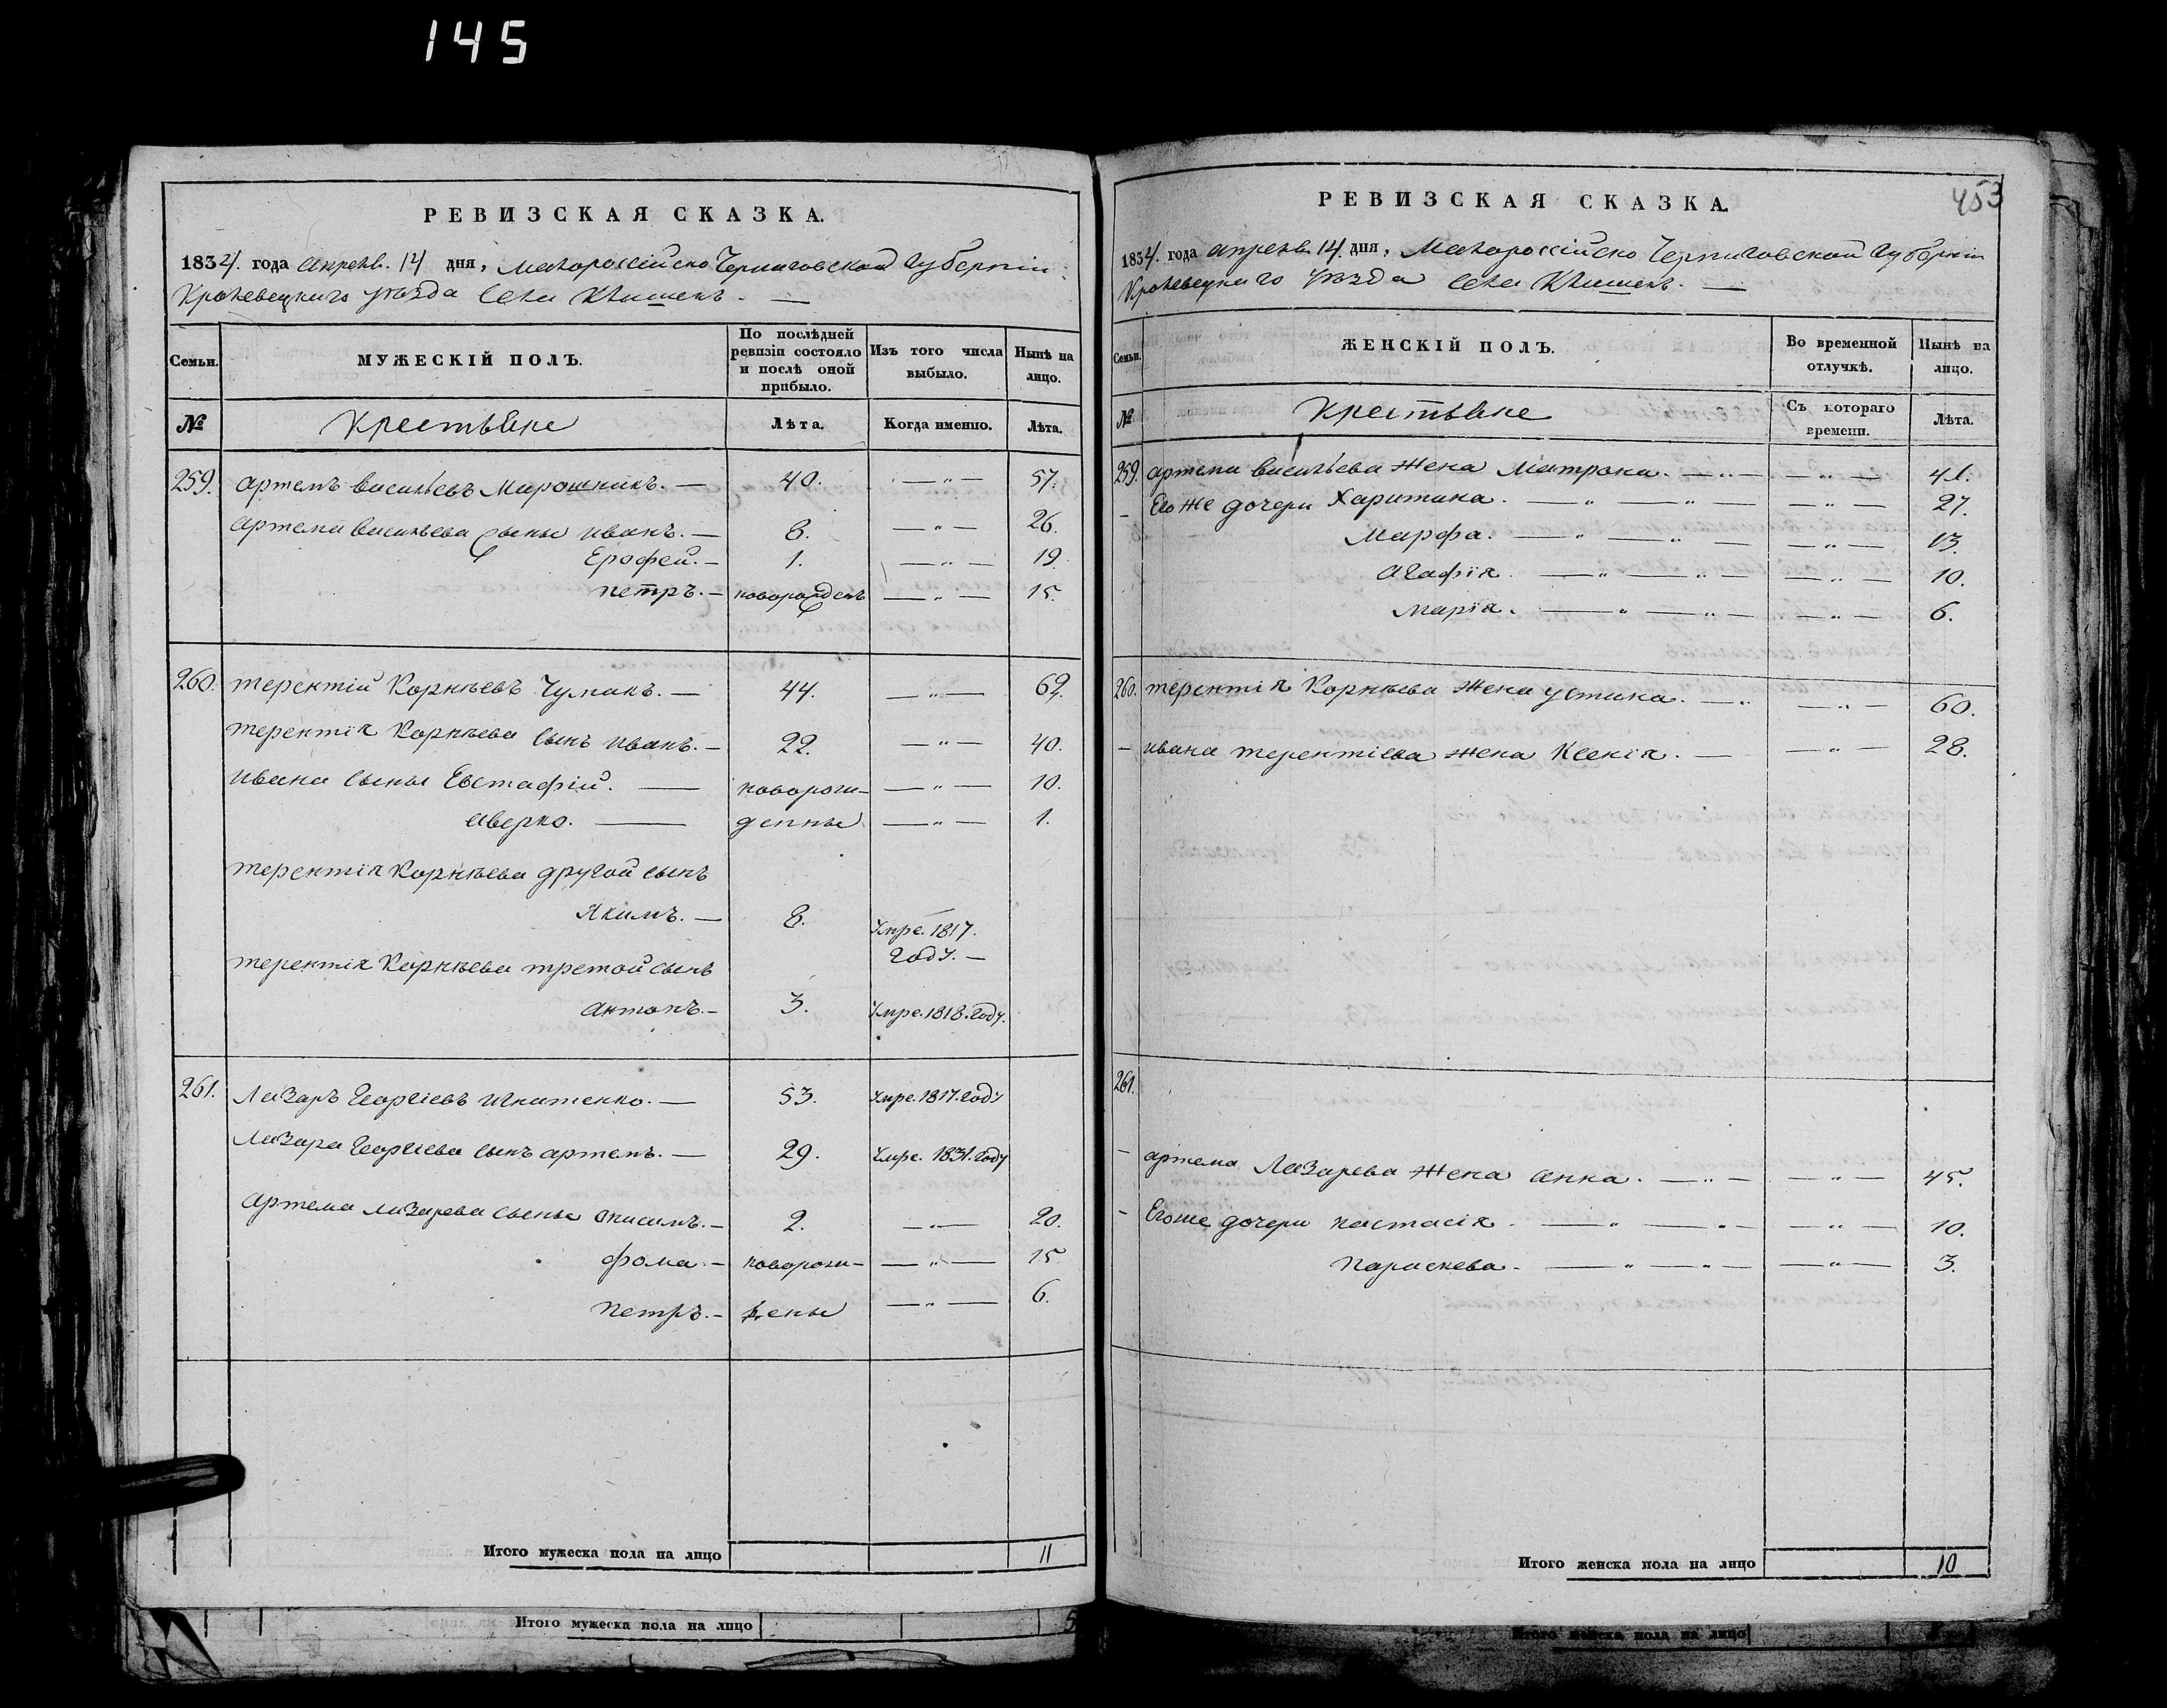 145
РЕВИЗСКАЯ СКАЗКА.
1834. года апреля. 14 дня, Малороссійско Черниговской губерніи
Кролевецкаго уѣзда села Клишекъ. —
Семьи. МУЖЕСКІЙ ПОЛЪ. По послѣдней ревизіи состояло и послѣ оной прибыло. Изъ того числа выбыло. Нынѣ на лицо.
№ Крестьяне Лѣта. Когда именно. Лѣта.
259. Артемъ Васильевъ Мирошникъ. — 40. — „ — 57.
Артема Васильева сыны Иванъ. — 8. — „ — 26.
Ерофей. — 1. — „ — 19.
Петръ. — новорожденъ — „ — 15.
260. Терентій Корнѣевъ Чумакъ. — 44. — „ — 62.
Терентія Корнѣева сынъ Иванъ. — 22. — „ — 40.
Ивана сыны Евстафій. — новорож- — „ — 10.
Аверко. — денны — „ — 1.
Терентія Корнѣева другой сынъ
Якимъ. — 8. Умре. 1817.
году. —
Терентія Корнѣева третой сынъ
Антонъ. — 3. Умре. 1818. году.
261. Лазаръ Георгіевъ Игнатенко. — 53. Умре. 1817. году
Лазара Георгіева сынъ Артемъ. — 29. Умре. 1831. году
Артема Лазарева сыны Онисимъ. — 2. — „ — 20.
Фома. — новорож- — „ — 15
Петръ. — дены — „ — 6.
Итого мужеска пола на лицо 11
Итого мужеска пола на лицо 5
453
РЕВИЗСКАЯ СКАЗКА.
1834. года апреля 14. дня, Малороссійско Черниговской губерніи
Кролевецкаго уѣзда села Клишекъ. —
Семьи. ЖЕНСКІЙ ПОЛЪ. Во временной отлучкѣ. Нынѣ на лицо.
№ Крестьяне Съ котораго времени. Лѣта.
259. Артема Васильева жена Матрона. — „ — — „ — 41.
– Его же дочери Харитина. — „ — „ — — „ — 27.
Марфа. — „ — „ — — „ — 13.
Агафія. — „ — „ — — „ — 10.
Марія. — „ — „ — — „ — 6.
260. Терентія Корнѣева жена Устина. — „ — „ — 60.
– Ивана Терентіева жена Ксенія. — — „ — 28.
261.
– Артема Лазарева жена Анна. — „ — — „ — 45.
– Его же дочери Настасія. — „ — „ — — „ — 10.
Параскева. — „ — „ — — „ — 3.
Итого женска пола на лицо 10
Итого женска пола на лицо